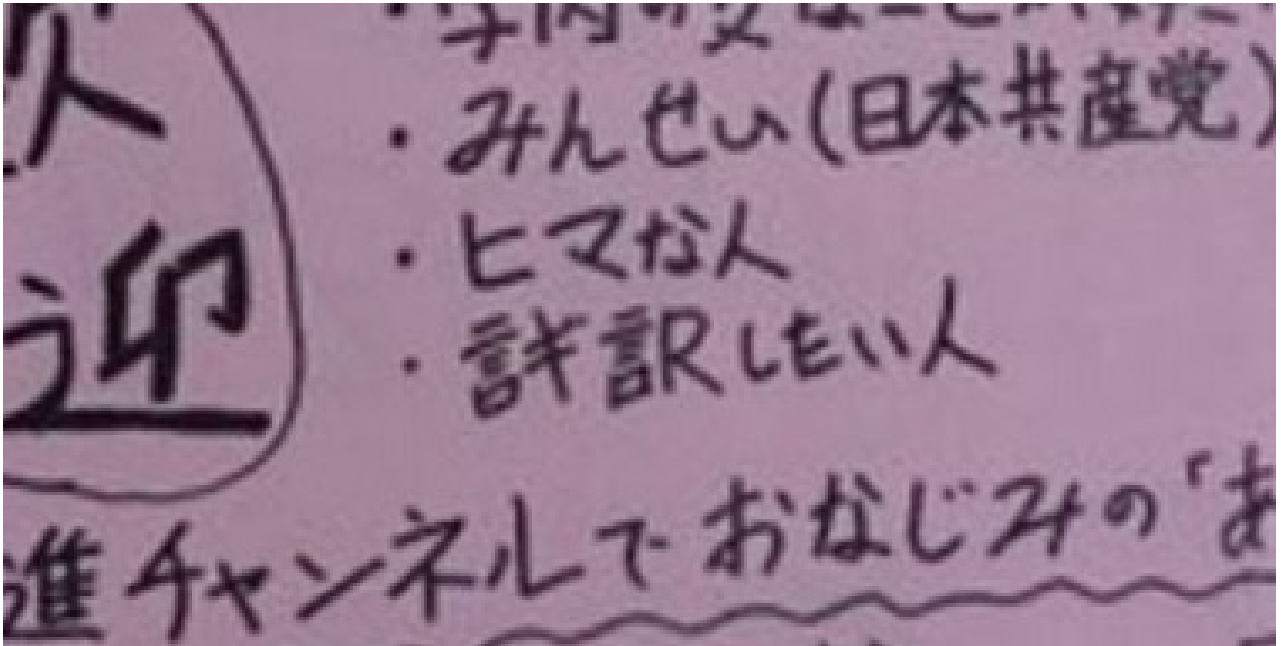 迎
・みんせい(日本共産党)
・ヒマな人
・議論したい人
進チャンネルでおなじみの「あ